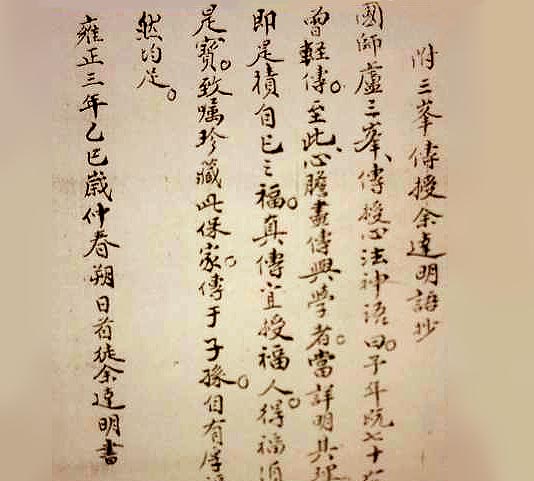 附三峯傳授余達明語抄
國師盧三峯、傳授心法神語曰。子年既七十有
曾輕傳。至此、心膽盡傳與學者。當詳明其理
即是積自己之福。真傳宜授福人。得福須
是寶。致囑珍藏此保家。傳于子孫。自有厚
然均足。
雍正三年乙巳歲仲春朔日首徒余達明書